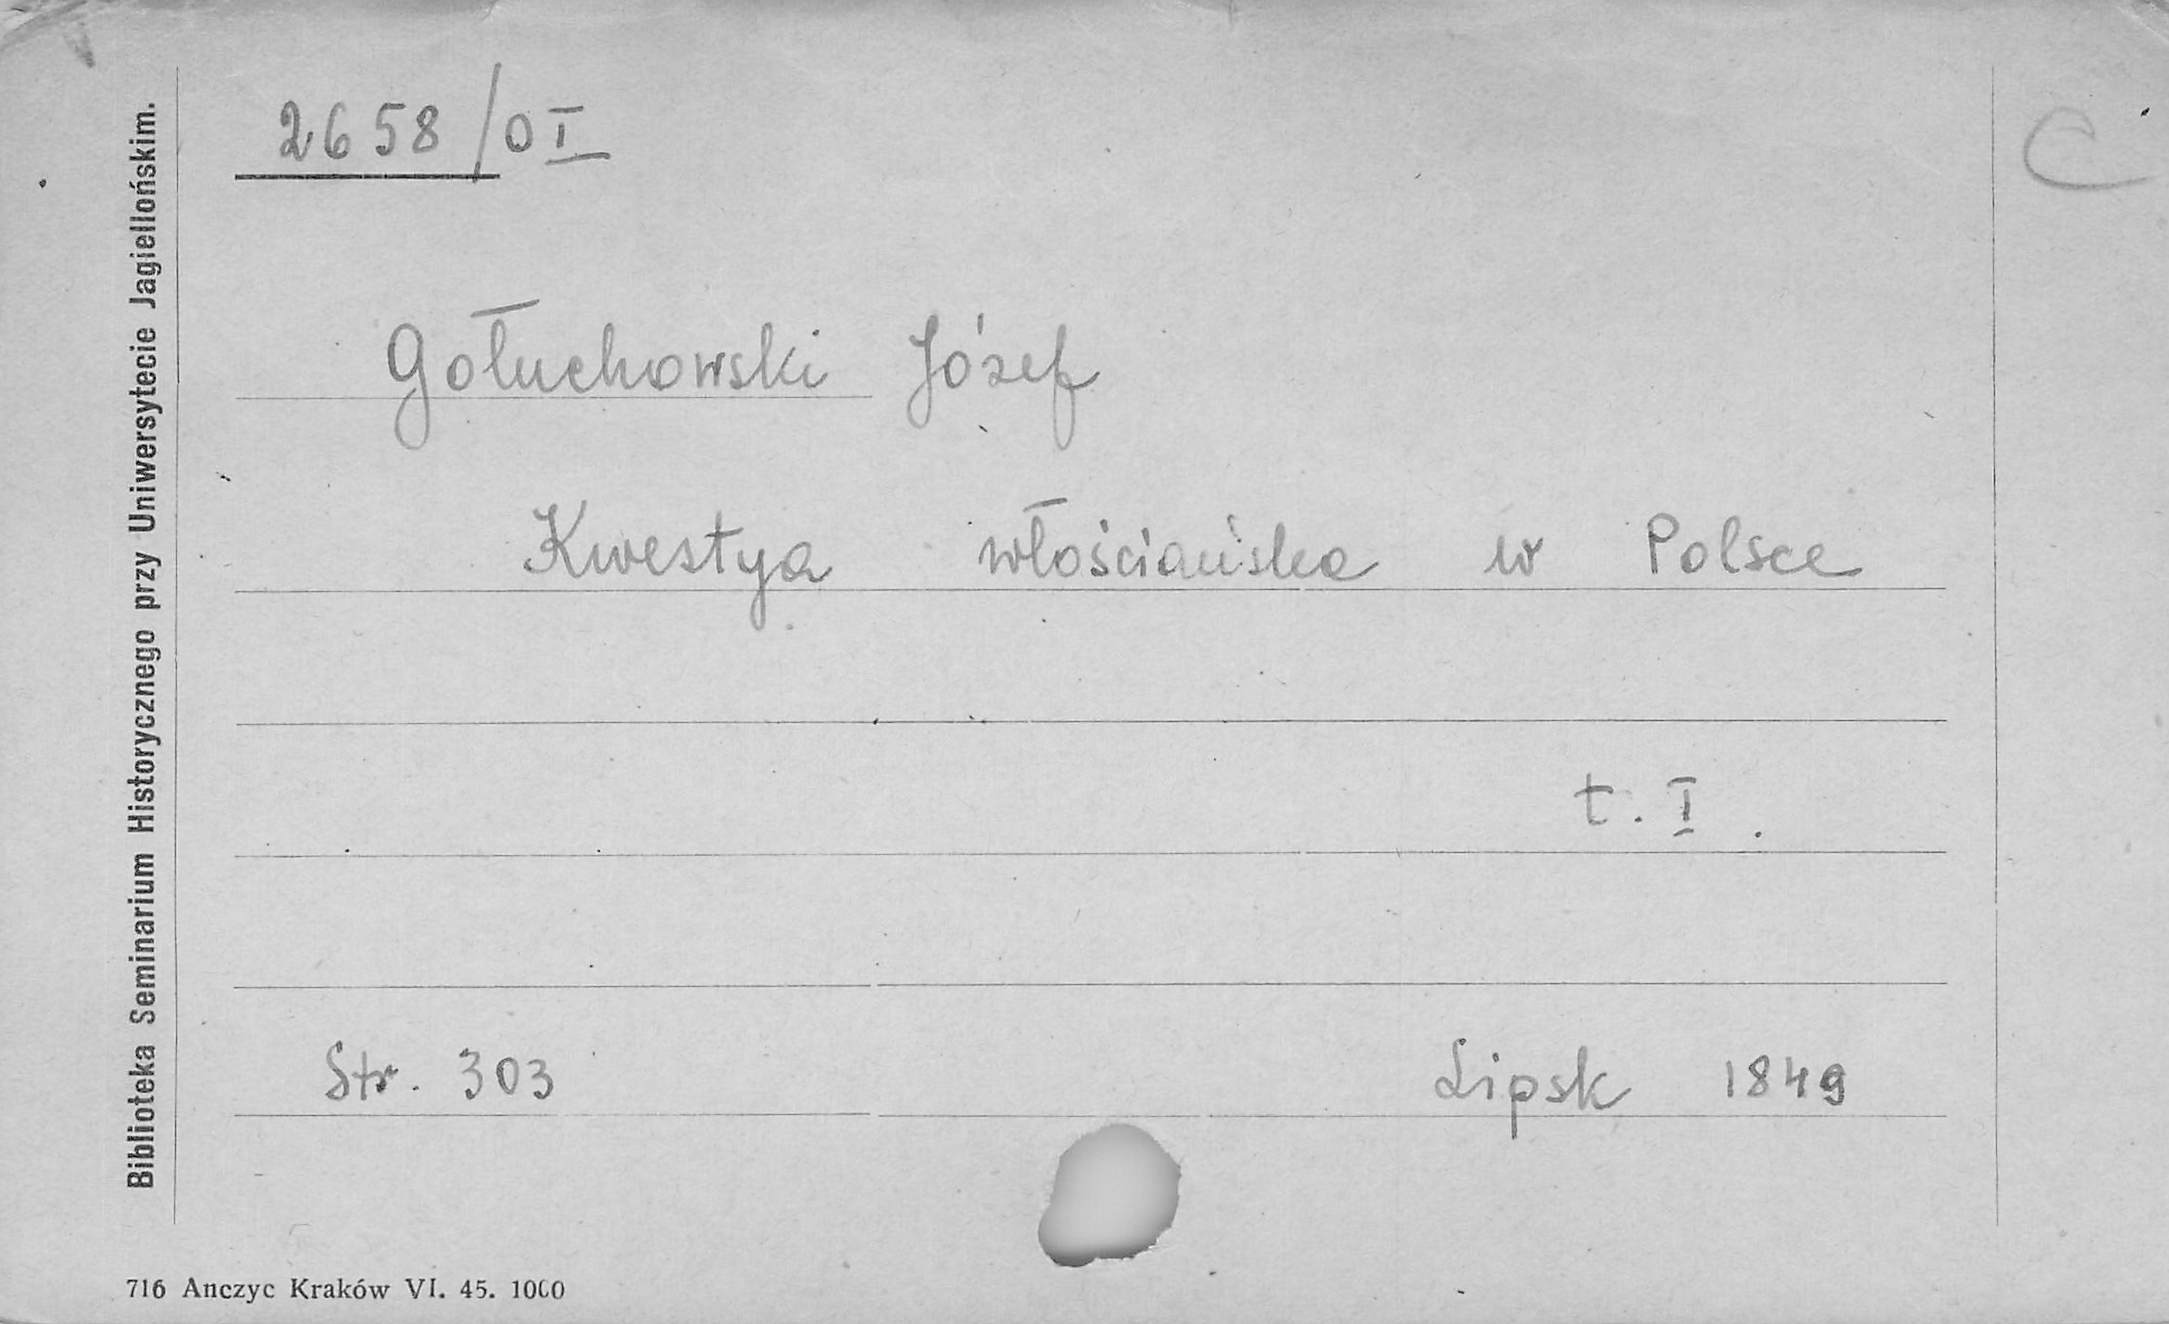 2658/0 I
C
Gołuchowski Józef
Kwestya włościańska w Polsce
t. I.
Str. 303 Lipsk 1849
Biblioteka Seminarium Historycznego przy Uniwersytecie Jagiellońskim.
716 Anczyc Kraków VI. 45. 1000